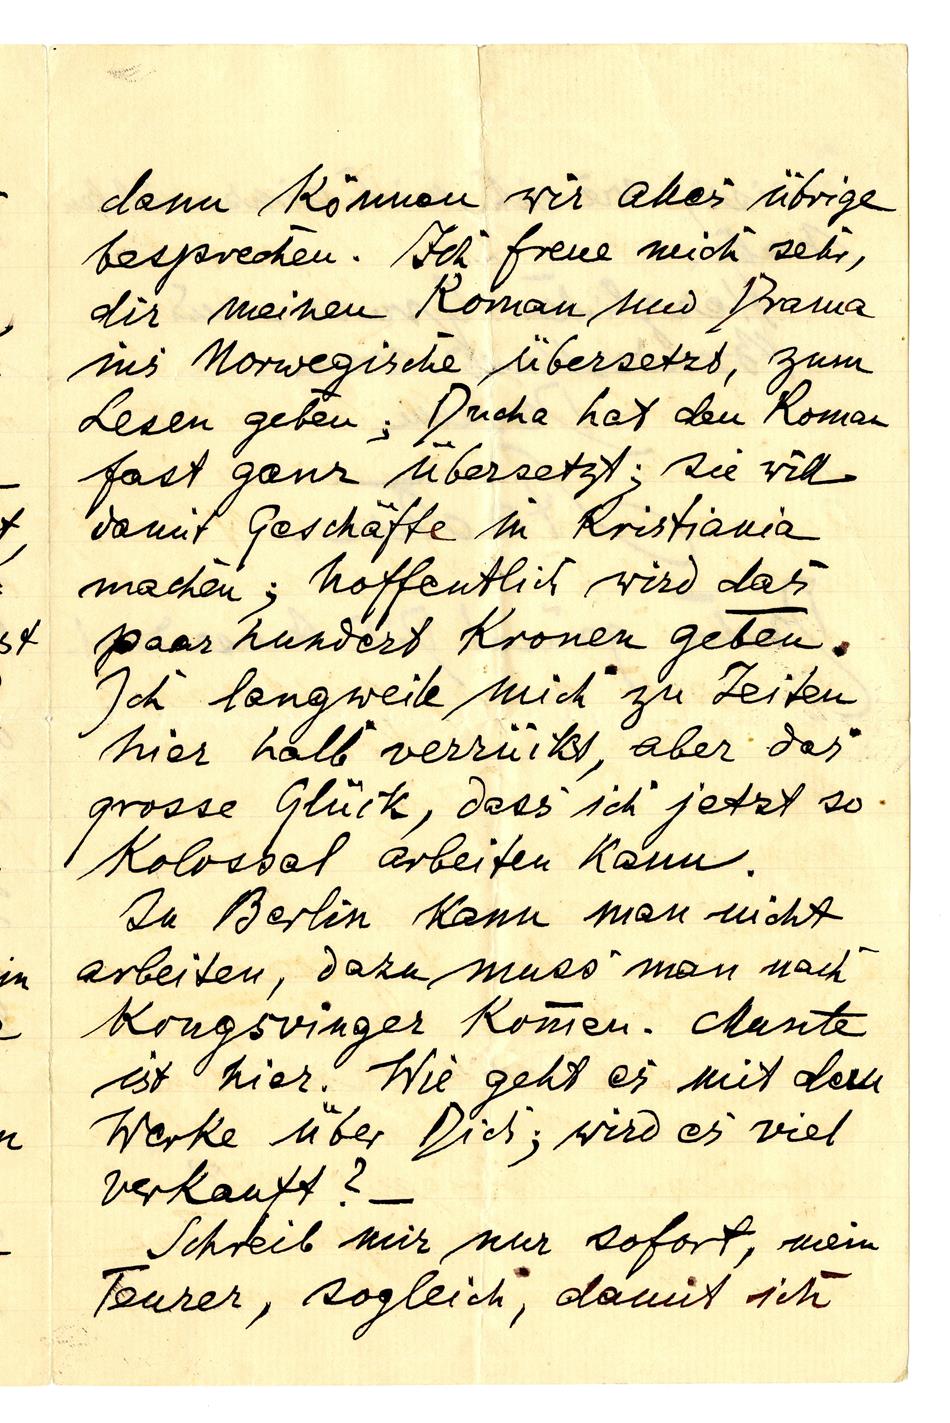 dann Können wir alles übrige
besprechen. Ich freue mich sehr,
dir meinen Roman und Drama
ins Norwegische übersetzt, zum
Lesen geben; Ducha hat den Roman
fast ganz übersetzt; sie will
damit Geschäfte in Kristiania
machen; hoffentlich wird das
paar hundert Kronen geben.
Ich langweile mich zu Zeiten
hier halb verrückt, aber das
grosse Glück, dass ich jetzt so
Kolossal arbeiten Kann.
In Berlin Kann man nicht
arbeiten, dazu muss man nach
Kongsvinger Kom̅en. Munte
ist hier. Wie geht es mit dem
Werke über Dich; wird es viel
verkauft? —
Schreib mir nur sofort, mein
Teurer, sogleich, damit ich